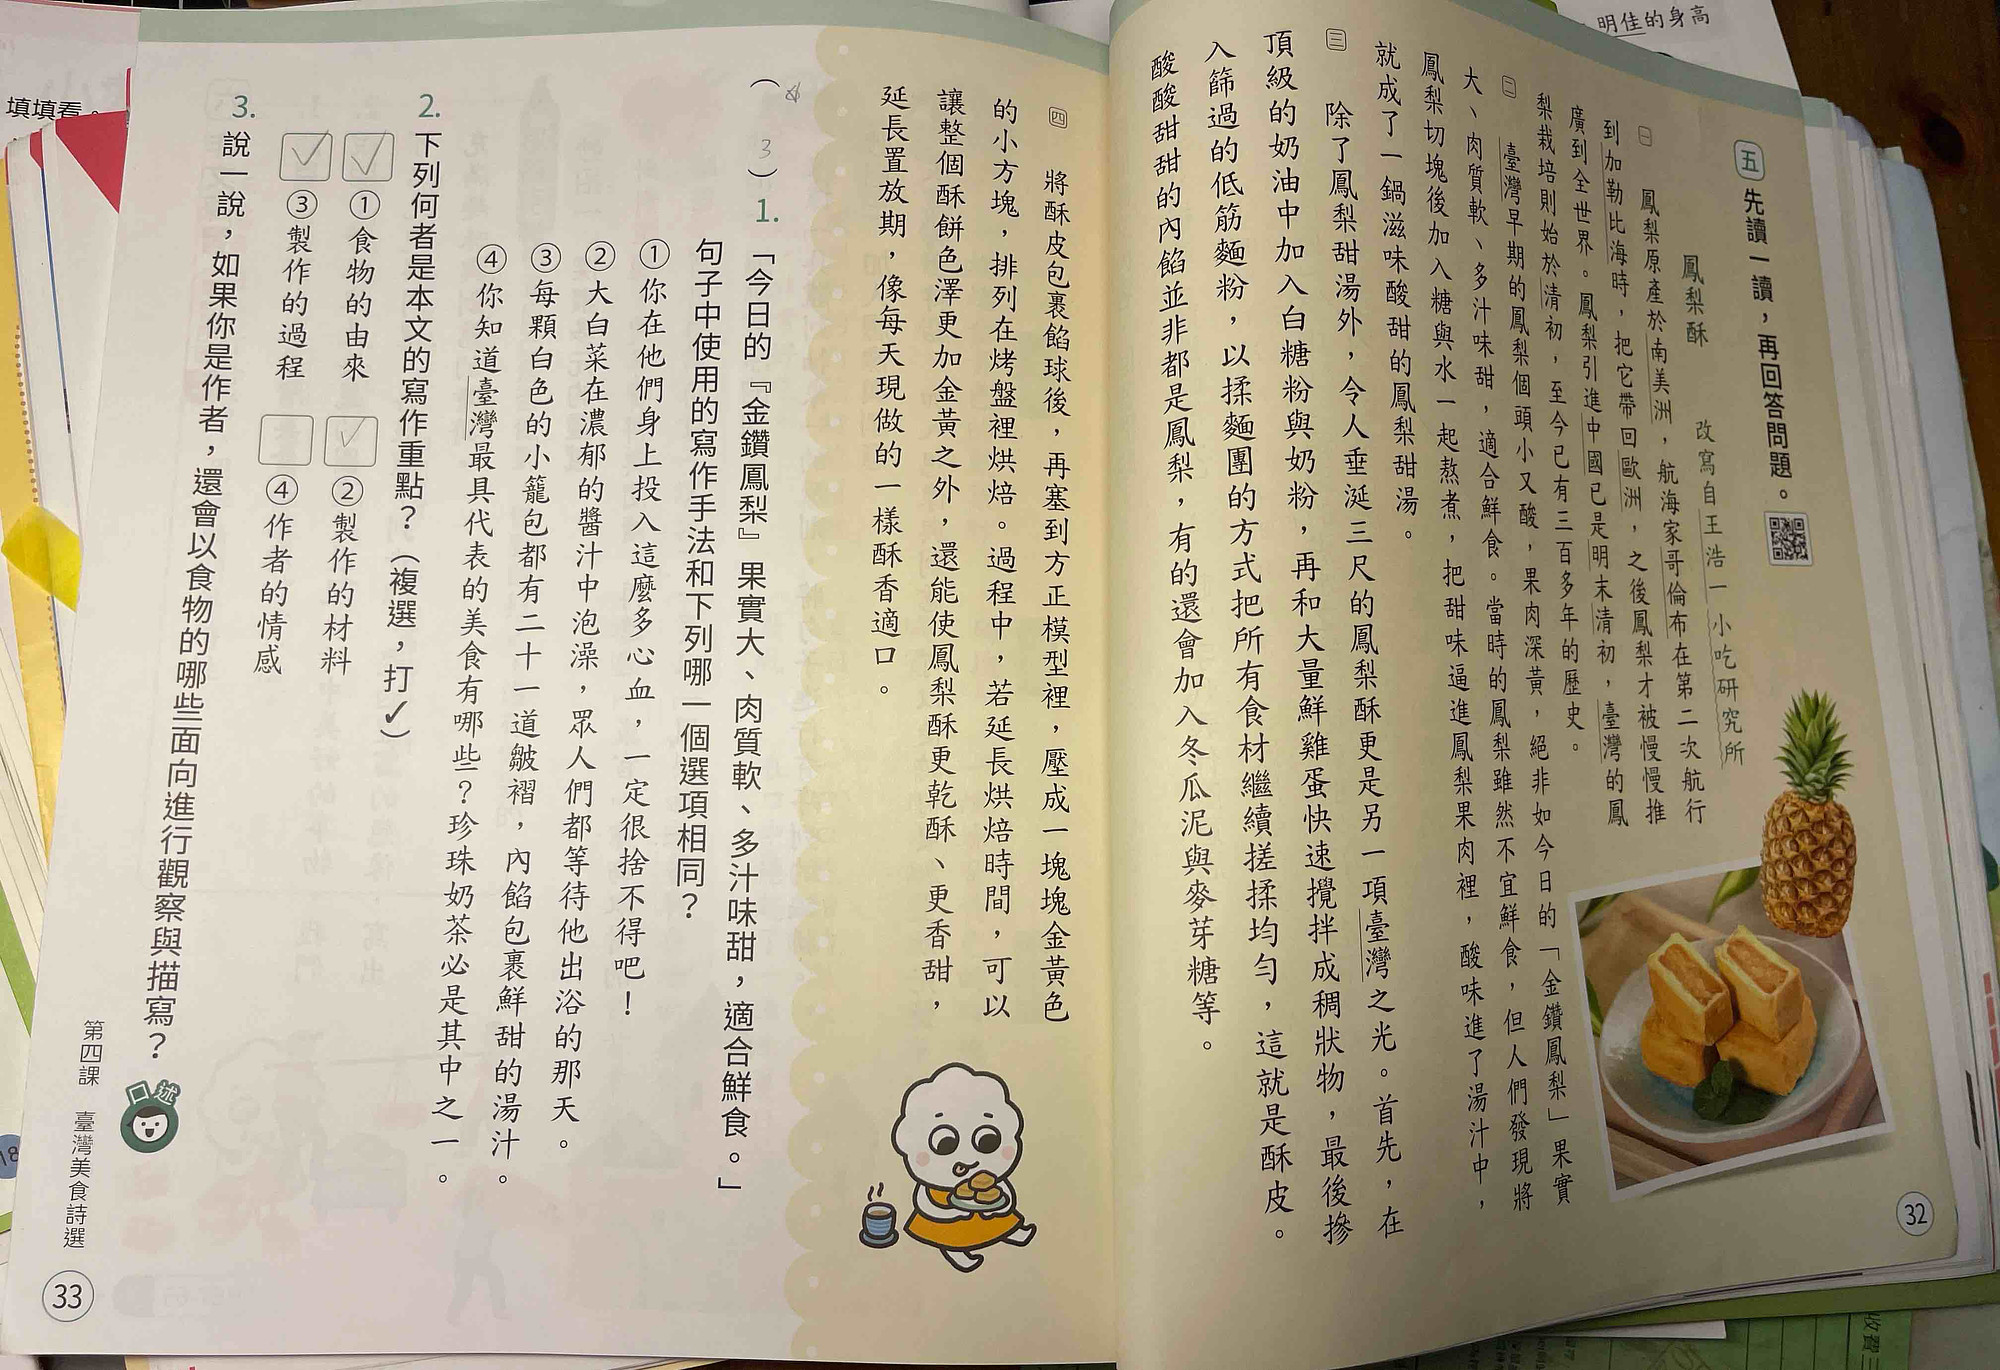 五 先讀一讀，再回答問題。
鳳梨酥
改寫自王浩一 小吃研究所
㈠ 鳳梨原產於南美洲，航海家哥倫布在第二次航行
到加勒比海時，把它帶回歐洲，之後鳳梨才被慢慢推
廣到全世界。鳳梨引進中國已是明末清初，臺灣的鳳
梨栽培則始於清初，至今已有三百多年的歷史。
㈡ 臺灣早期的鳳梨個頭小又酸，果肉深黃，絕非如今日的「金鑽鳳梨」果實
大、肉質軟、多汁味甜，適合鮮食。當時的鳳梨雖然不宜鮮食，但人們發現將
鳳梨切塊後加入糖與水一起熬煮，把甜味逼進鳳梨果肉裡，酸味進了湯汁中，
就成了一鍋滋味酸甜的鳳梨甜湯。
㈢ 除了鳳梨甜湯外，令人垂涎三尺的鳳梨酥更是另一項臺灣之光。首先，在
頂級的奶油中加入白糖粉與奶粉，再和大量鮮雞蛋快速攪拌成稠狀物，最後摻
入篩過的低筋麵粉，以揉麵團的方式把所有食材繼續搓揉均勻，這就是酥皮。
酸酸甜甜的內餡並非都是鳳梨，有的還會加入冬瓜泥與麥芽糖等。
㈣ 將酥皮包裹餡球後，再塞到方正模型裡，壓成一塊塊金黃色
的小方塊，排列在烤盤裡烘焙。過程中，若延長烘焙時間，可以
讓整個酥餅色澤更加金黃之外，還能使鳳梨酥更乾酥、更香甜，
延長置放期，像每天現做的一樣酥香適口。
32
（ 3 ）1. 「今日的『金鑽鳳梨』果實大、肉質軟、多汁味甜，適合鮮食。」
句子中使用的寫作手法和下列哪一個選項相同？
①你在他們身上投入這麼多心血，一定很捨不得吧！
②大白菜在濃郁的醬汁中泡澡，眾人們都等待他出浴的那天。
③每顆白色的小籠包都有二十一道皺褶，內餡包裹鮮甜的湯汁。
④你知道臺灣最具代表的美食有哪些？珍珠奶茶必是其中之一。
2. 下列何者是本文的寫作重點？（複選，打✓）
✓ ①食物的由來 ✓ ②製作的材料
✓ ③製作的過程 ④作者的情感
3. 說一說，如果你是作者，還會以食物的哪些面向進行觀察與描寫？
口述
第四課 臺灣美食詩選
33
填填看。
明佳的身高